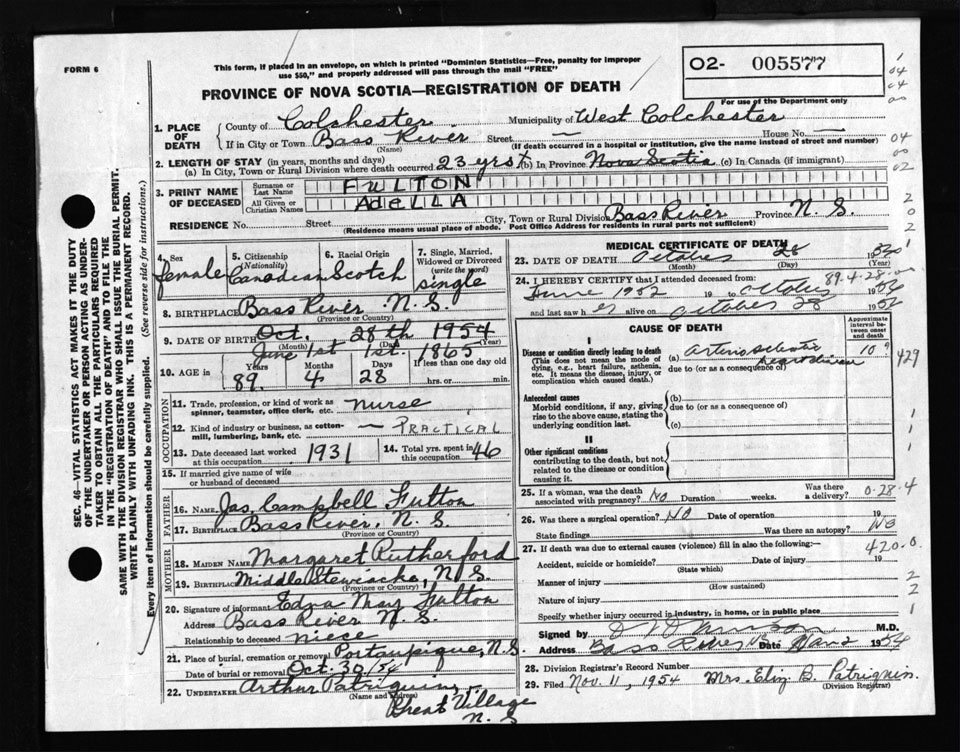 FORM 6
This form, if placed in an envelope, on which is printed "Dominion Statistics—Free, penalty for improper
use $50," and properly addressed will pass through the mail "FREE"
O2- 005577
For use of the Department only
PROVINCE OF NOVA SCOTIA—REGISTRATION OF DEATH
1. PLACE OF DEATH
County of Colchester Municipality of West Colchester
If in City or Town Bass River Street — House No. —
(Name) (If death occurred in a hospital or institution, give the name instead of street and number)
2. LENGTH OF STAY (in years, months and days)
(a) In City, Town or Rural Division where death occurred 23 yrs (b) In Province Nova Scotia (c) In Canada (if immigrant)
3. PRINT NAME OF DECEASED
Surname or Last Name FULTON
All Given or Christian Names AdELLA
RESIDENCE No. Street City, Town or Rural Division Bass River Province N. S.
(Residence means usual place of abode. Post Office Address for residents in rural parts not sufficient)
4. Sex female
5. Citizenship (Nationality) Canadian
6. Racial Origin Scotch
7. Single, Married, Widowed or Divorced (write the word) single
8. BIRTHPLACE Bass River, N. S.
(Province or Country)
9. DATE OF BIRTH Oct. 28th 1954
(Month) (Day) (Year)
June 1st 1st. 1865
10. AGE in Years Months Days If less than one day
89 4 28 hrs. or min.
OCCUPATION
11. Trade, profession, or kind of work as spinner, teamster, office clerk, etc. nurse
12. Kind of industry or business, as cotton-mill, lumbering, bank, etc. — PRACTICAL
13. Date deceased last worked at this occupation 1931
14. Total yrs. spent in this occupation 46
15. If married give name of wife or husband of deceased
FATHER
16. Name Jas. Campbell Fulton
17. Birthplace Bass River, N. S.
(Province or Country)
MOTHER
18. MAIDEN NAME Margaret Rutherford
19. BIRTHPLACE Middle Stewiacke, N. S.
(Province or Country)
20. Signature of informant Edna May Fulton
Address Bass River N. S.
Relationship to deceased niece
21. Place of burial, cremation or removal Portaupique, N.S.
Date of burial or removal Oct. 30/54
22. UNDERTAKER Arthur Patriquin
(Name and Address)
Great Village
N. S
MEDICAL CERTIFICATE OF DEATH
23. DATE OF DEATH October 28
(Month) (Day) (Year)
24. I HEREBY CERTIFY that I attended deceased from:
89.4.28
June 1952 19 to October 19
and last saw h er alive on October 28 19
CAUSE OF DEATH
Approximate interval between onset and death
I
Disease or condition directly leading to death
(This does not mean the mode of dying, e.g., heart failure, asthenia, etc. It means the disease, injury, or complication which caused death.)
(a)
due to (or as a consequence of)
10
429
Antecedent causes
Morbid conditions, if any, giving rise to the above cause, stating the underlying condition last.
(b)
due to (or as a consequence of)
(c)
II
Other significant conditions
contributing to the death, but not related to the disease or condition causing it.
25. If a woman, was the death associated with pregnancy? No Duration weeks. Was there a delivery? 0.28.4
26. Was there a surgical operation? No Date of operation 19
State findings Was there an autopsy? No
27. If death was due to external causes (violence) fill in also the following:—
420.0
Accident, suicide or homicide? Date of injury 19
(State which)
Manner of injury
(How sustained)
Nature of injury
Specify whether injury occurred in industry, in home, or in public place
Signed by M.D.
Address Bass River NS Date 1954
28. Division Registrar's Record Number
29. Filed Nov. 11, 1954 Mrs. Eliz. B. Patriquin
(Division Registrar)
SEC. 46—VITAL STATISTICS ACT MAKES IT THE DUTY
OF THE UNDERTAKER OR PERSON ACTING AS UNDERTAKER TO OBTAIN ALL THE PARTICULARS REQUIRED
IN THE "REGISTRATION OF DEATH" AND TO FILE THE
SAME WITH THE DIVISION REGISTRAR WHO SHALL ISSUE THE BURIAL PERMIT.
WRITE PLAINLY WITH UNFADING INK. THIS IS A PERMANENT RECORD.
Every item of information should be carefully supplied. (See reverse side for instructions.)